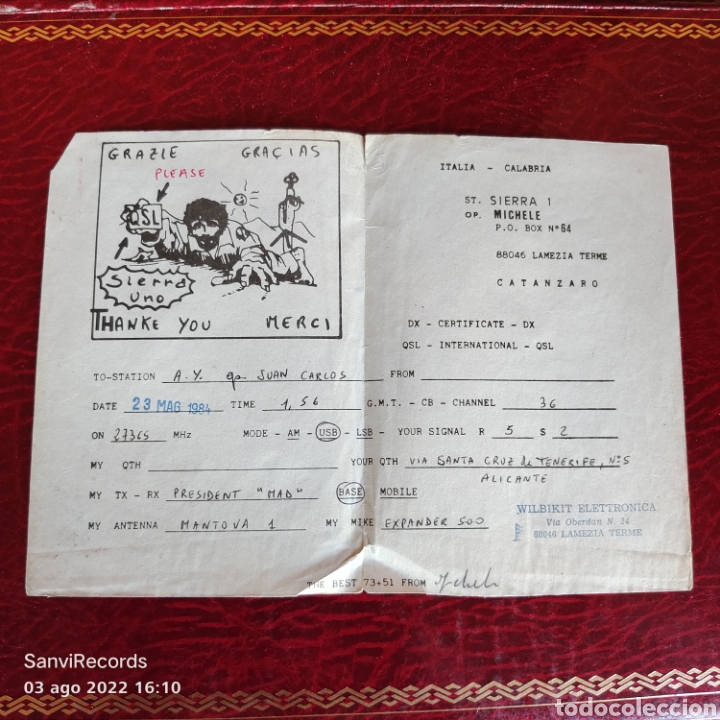 GRAZIE GRAÇIAS
PLEASE
QSL
Sierra
Uno
THANKE YOU MERCI
ITALIA - CALABRIA
ST. SIERRA 1
OP. MICHELE
P.O. BOX N° 64
88046 LAMEZIA TERME
CATANZARO
DX - CERTIFICATE - DX
QSL - INTERNATIONAL - QSL
TO-STATION A.Y. op JUAN CARLOS FROM
DATE 23 MAG 1984 TIME 1,56 G.M.T. - CB - CHANNEL 36
ON 27365 MHz MODE - AM - USB - LSB - YOUR SIGNAL R 5 S 2
MY QTH YOUR QTH VIA SANTA CRUZ de TENERIFE, N°5
ALICANTE
MY TX - RX PRESIDENT "MAD" BASE MOBILE
MY ANTENNA MANTOVA 1 MY MIKE EXPANDER 500
WILBIKIT ELETTRONICA
Via Oberdan N. 24
88046 LAMEZIA TERME
THE BEST 73+51 FROM Michele
SanviRecords
03 ago 2022 16:10
todocoleccion